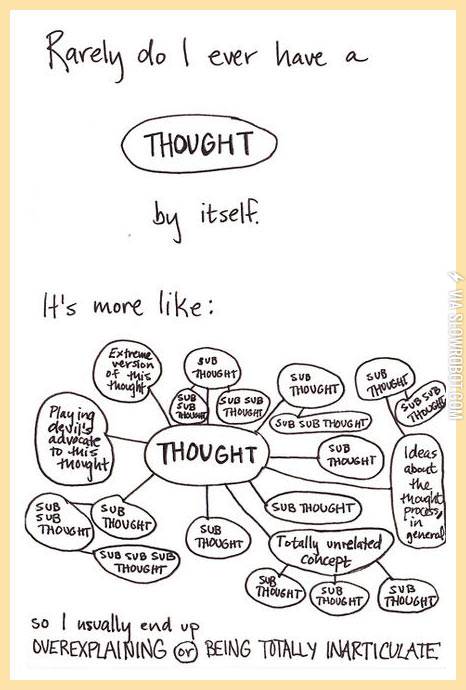 Rarely do I ever have a
THOUGHT
by itself.
It's more like:
Extreme
version
of this
thought
SUB
THOUGHT
SUB
SUB
THOUGHT
SUB SUB
THOUGHT
SUB
THOUGHT
SUB SUB THOUGHT
SUB
THOUGHT
SUB SUB
THOUGHT
Playing
devil's
advocate
to this
thought
THOUGHT
SUB
THOUGHT
Ideas
about
the
thought
process,
in
general
SUB
SUB
THOUGHT
SUB
THOUGHT
SUB SUB SUB
THOUGHT
SUB
THOUGHT
SUB THOUGHT
Totally unrelated
concept
SUB
THOUGHT
SUB
THOUGHT
SUB
THOUGHT
so I usually end up
OVEREXPLAINING or BEING TOTALLY INARTICULATE.
VIA SLOWROBOT.COM